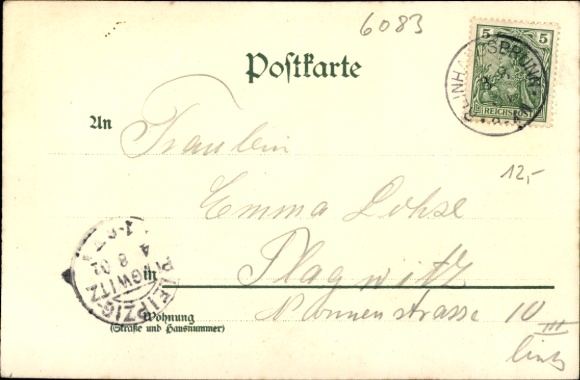 6083
5 5
REICHSPOST
Postkarte
12,-
An Fräulein
Emma Lohse
in Plagwitz
Nonnenstrasse 10 III
links
Wohnung
(Straße und Hausnummer)
LEIPZIG-
PLAGWITZ
4 8 02